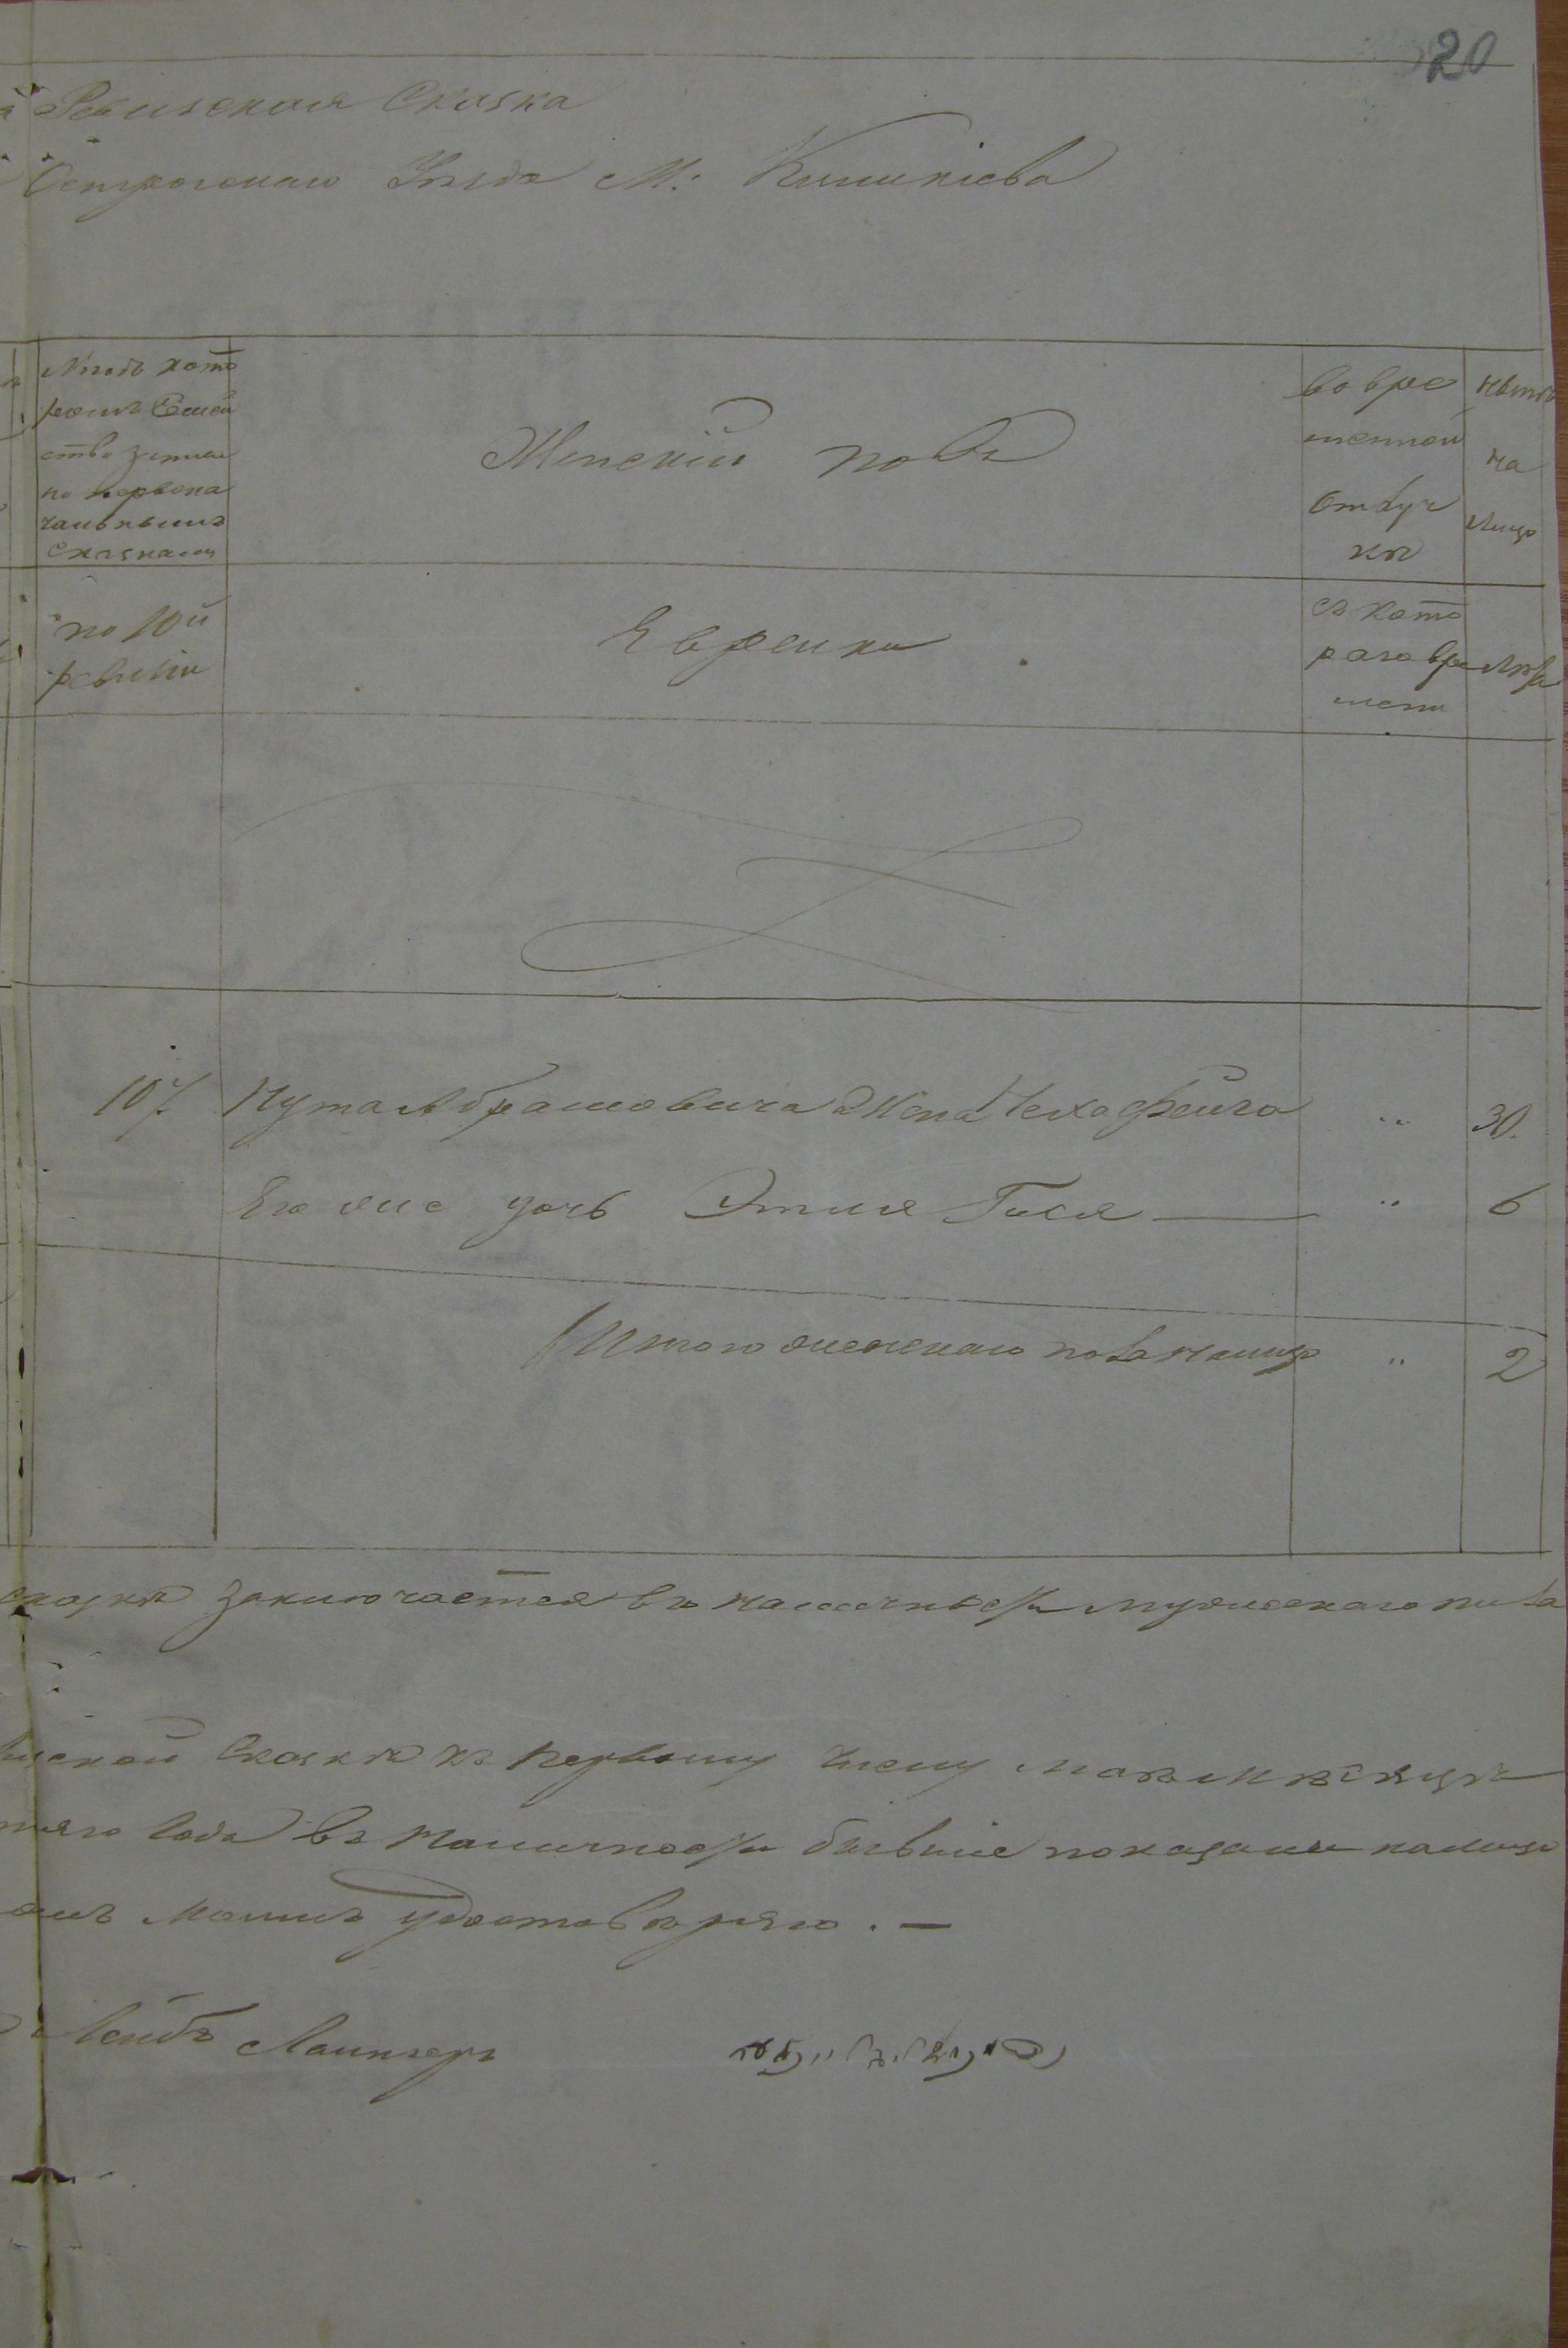 20
Ревизская Сказка
Острогскаго Уезда М: Кишкіева
№ подъ кото
рымъ Семей
ство записа
но в первона
чальныхъ
сказкахъ
Женскій полъ
во вре
менной
отлуч
кѣ
нынѣ
на
лицо
по 10й
ревизіи
Еврейки
съ кото
раго вре
мени
лѣта
107 Нута Абрамовича Жена Неха Фейга " 30.
Его же дочь Этля Гися " 6
Итого женскаго пола налицо " 2
сказкѣ заключается въ наличности мужескаго пола
Сказкѣ къ первому числу мая мѣсяца
года въ наличности бывшіе показаны налицо
удостовѣряю. —
Лейбъ